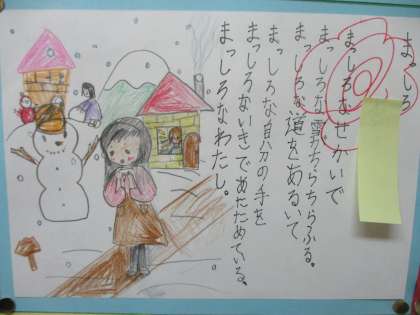 まっしろ
まっしろなせかいで
まっしろな雪がちらちらふる。
まっしろな道をあるいて、
まっしろな自分の手を
まっしろないきであたためている、
まっしろなわたし。